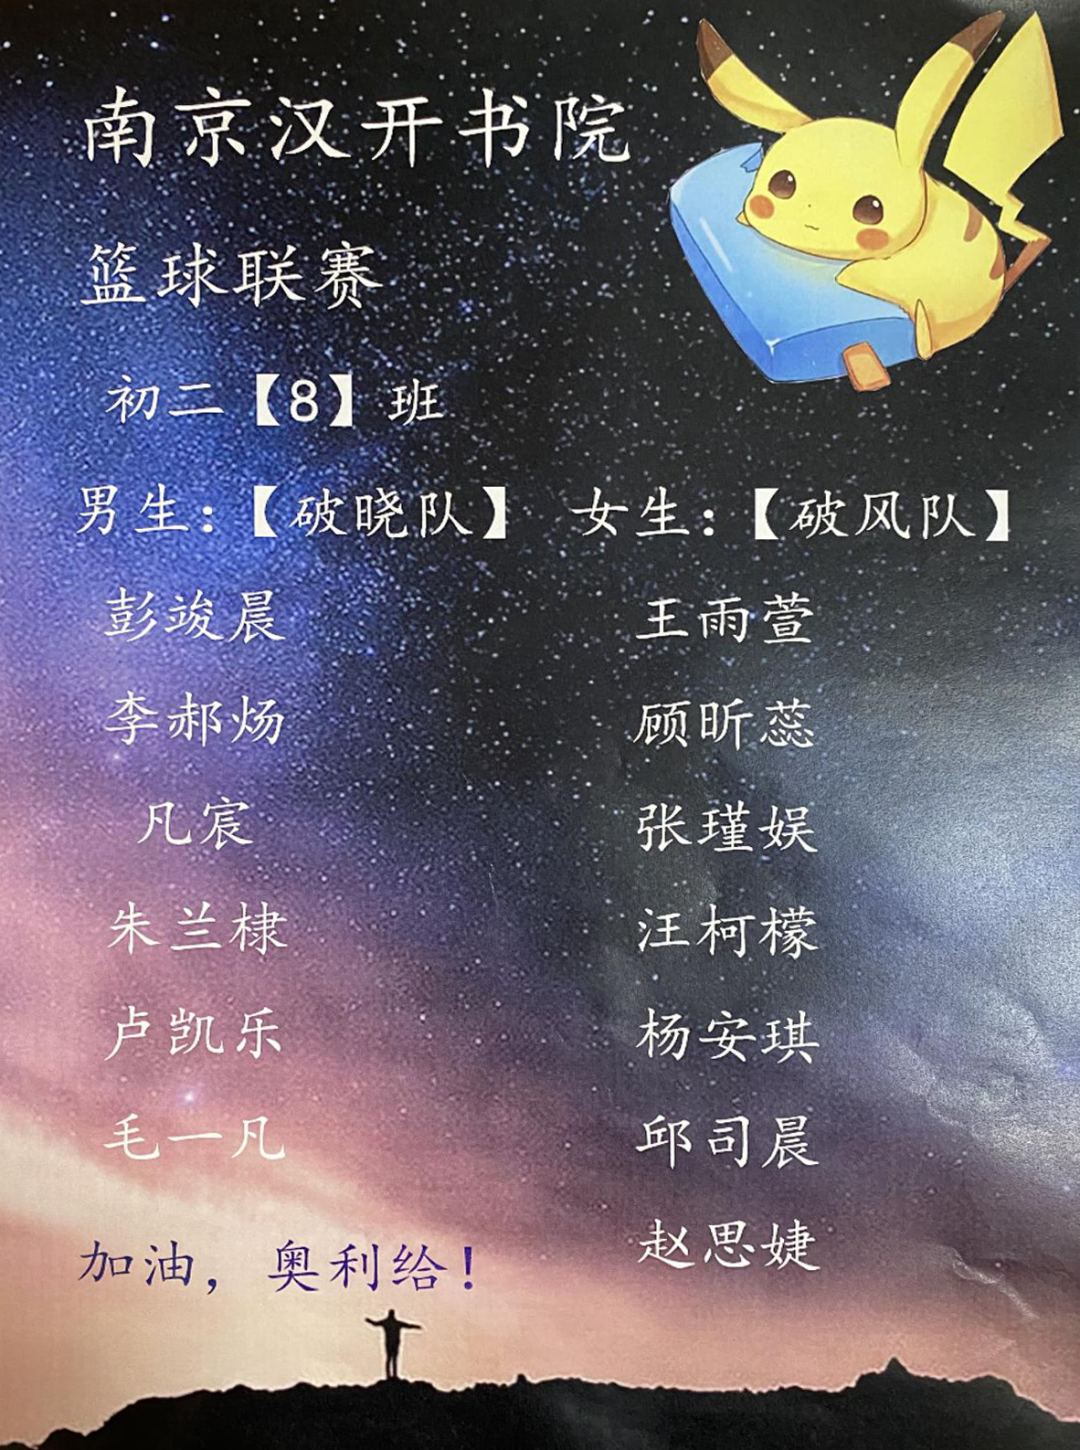 南京汉开书院
篮球联赛
初二【8】班
男生：【破晓队】 女生：【破风队】
彭竣晨 王雨萱
李郝炀 顾昕蕊
凡宸 张瑾娱
朱兰棣 汪柯檬
卢凯乐 杨安琪
毛一凡 邱司晨
赵思婕
加油，奥利给！